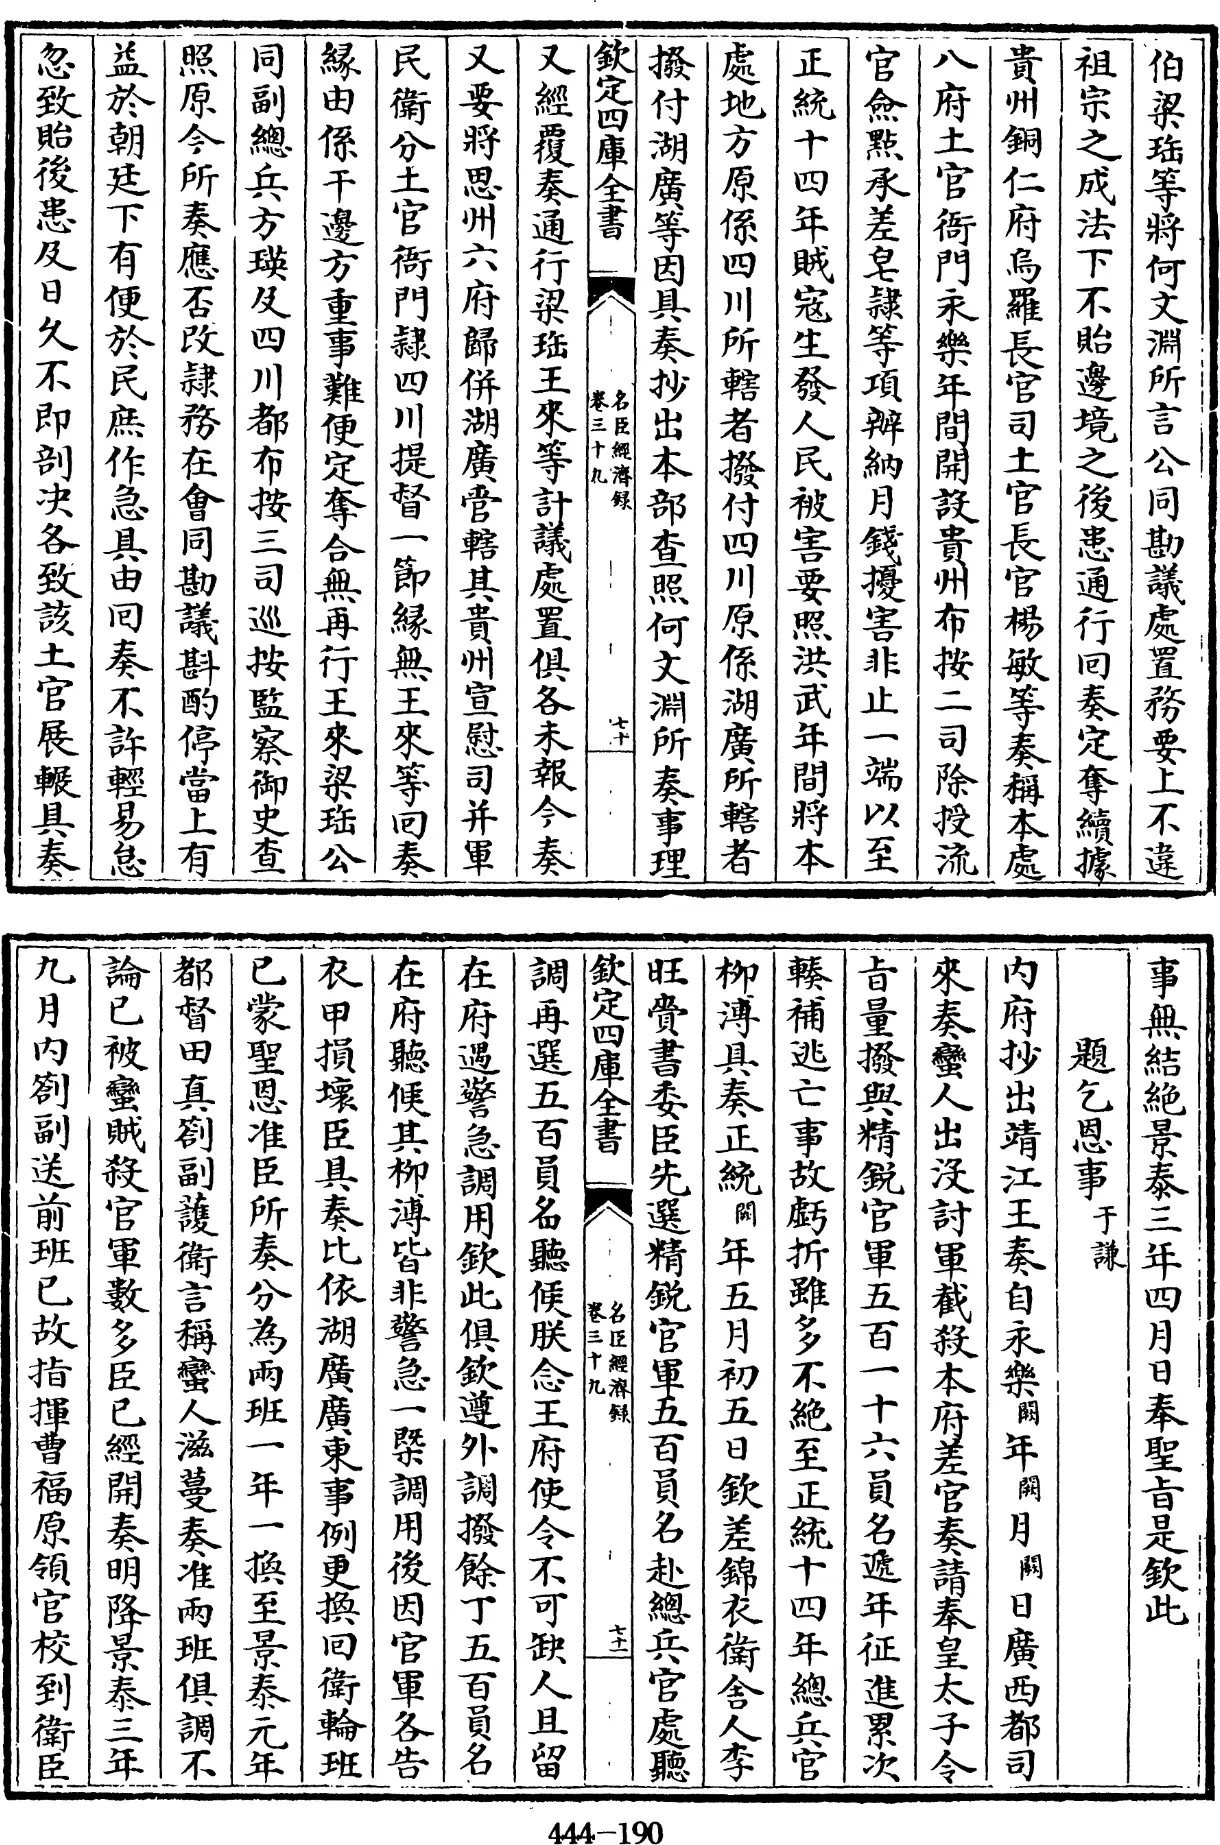 伯梁珤等將何文淵所言公同勘議處置務要上不違
祖宗之成法下不貽邊境之後患通行回奏定奪續據
貴州銅仁府烏羅長官司土官長官楊敏等奏稱本處
八府土官衙門永樂年間開設貴州布按二司除授流
官僉點承差皂隷等項辦納月錢擾害非止一端以至
正統十四年賊寇生發人民被害要照洪武年間將本
處地方原係四川所轄者撥付四川原係湖廣所轄者
撥付湖廣等因具奏抄出本部查照何文淵所奏事理
欽定四庫全書
名臣經濟録
卷三十九
七十
又經覆奏通行梁珤王來等計議處置俱各未報今奏
又要將思州六府歸併湖廣管轄其貴州宣慰司并軍
民衛分土官衙門隷四川提督一節緣無王來等回奏
緣由係干邊方重事難便定奪合無再行王來梁珤公
同副總兵方瑛及四川都布按三司巡按監察御史查
照原今所奏應否改隷務在會同勘議斟酌停當上有
益於朝廷下有便於民庶作急具由回奏不許輕易怠
忽致貽後患及日久不即剖决各致該土官展轉具奏
事無結絶景泰三年四月日奉聖旨是欽此
題乞恩事于謙
内府抄出靖江王奏自永樂闕年闕月闕日廣西都司
來奏蠻人出沒討軍截殺本府差官奏請奉皇太子令
旨量撥與精銳官軍五百一十六員名遞年征進累次
輳補逃亡事故虧折雖多不絶至正統十四年總兵官
柳溥具奏正統闕年五月初五日欽差錦衣衛舍人李
旺賫書委臣先選精銳官軍五百員名赴總兵官處聽
欽定四庫全書
名臣經濟録
卷三十九
七十一
調再選五百員名聽候朕念王府使令不可缺人且留
在府遇警急調用欽此俱欽遵外調撥餘丁五百員名
在府聽候其柳溥皆非警急一槩調用後因官軍各告
衣甲損壞臣具奏比依湖廣廣東事例更換回衛輪班
已蒙聖恩准臣所奏分為兩班一年一換至景泰元年
都督田真劄副護衛言稱蠻人滋蔓奏准兩班俱調不
論已被蠻賊殺官軍數多臣已經開奏明降景泰三年
九月内劄副送前班已故指揮曹福原領官校到衛臣
444-190